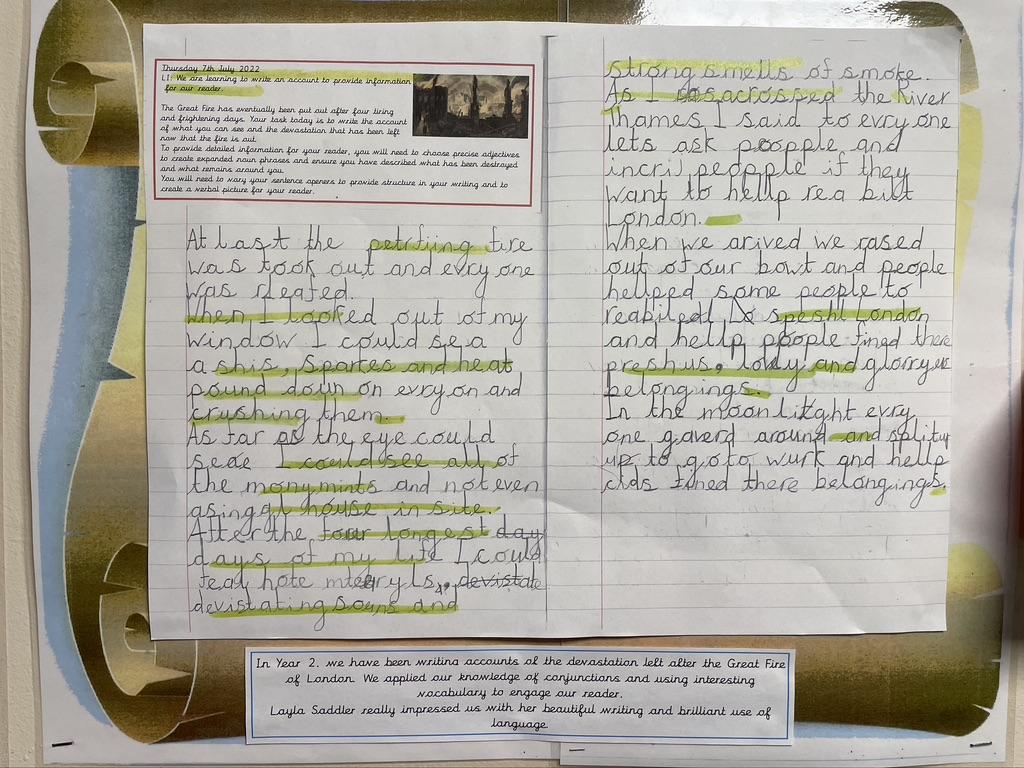 Thursday 7th July 2022
LI: We are learning to write an account to provide information
for our reader.
The Great Fire has eventually been put out after four tiring
and frightening days. Your task today is to write the account
of what you can see and the devastation that has been left
now that the fire is out.
To provide detailed information for your reader, you will need to choose precise adjectives
to create expanded noun phrases and ensure you have described what has been destroyed
and what remains around you.
You will need to vary your sentence openers to provide structure in your writing and to
create a verbal picture for your reader.
At last the petrfiing fire
was took out and evry one
was
when I looked out of my
window I could se a
a shis, spartes and heat
pound down on evry on and
crushing them.
As far as the eye could
seae I could see all of
the monymints and not even
a singgl house in site.
After the four longest day
days of my life I could
feal hote , devistate
devistating souns and
strong smells of smoke.
As I acrossed the River
Thames I said to evry one
lets ask poople and
peopple if they
want to hellp rea bilt
London.
When we arived we rased
out of our bowt and people
hellped some people to
speshl London
and hellp poople fined there
preshus, and
belongings.
In the moon litght evry
one gaverd around and splitup
up to go to wurk and hellp
fined there belongings.
In Year 2. we have been writing accounts of the devastation left after the Great Fire
of London. We applied our knowledge of conjunctions and using interesting
vocabulary to engage our reader.
Layla Saddler really impressed us with her beautiful writing and brilliant use of
language.